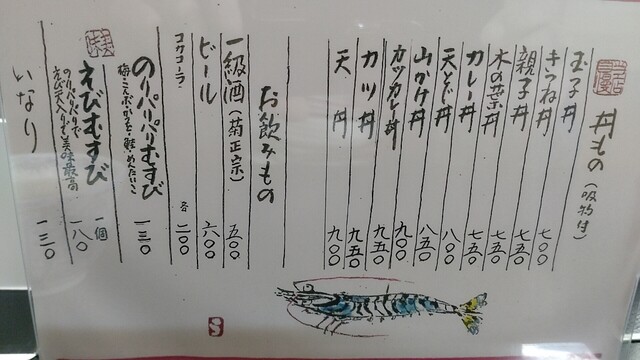 丼もの（吸物付）
玉子丼 七〇〇
きつね丼 七五〇
親子丼 七五〇
木の葉丼 七五〇
カレー丼 八〇〇
天とじ丼 八五〇
山かけ丼 九〇〇
カツカレー丼 九五〇
カツ丼 九五〇
天丼 九〇〇
お飲みもの
一級酒（菊正宗） 五〇〇
ビール 六〇〇
コカコーラ 各二〇〇
のりパリパリむすび 一三〇
梅・こんぶ・かつを・鮭・めんたいこ
えびむすび 一個 一八〇
のりパリパリで
えび天入りで美味最高
いなり 一三〇